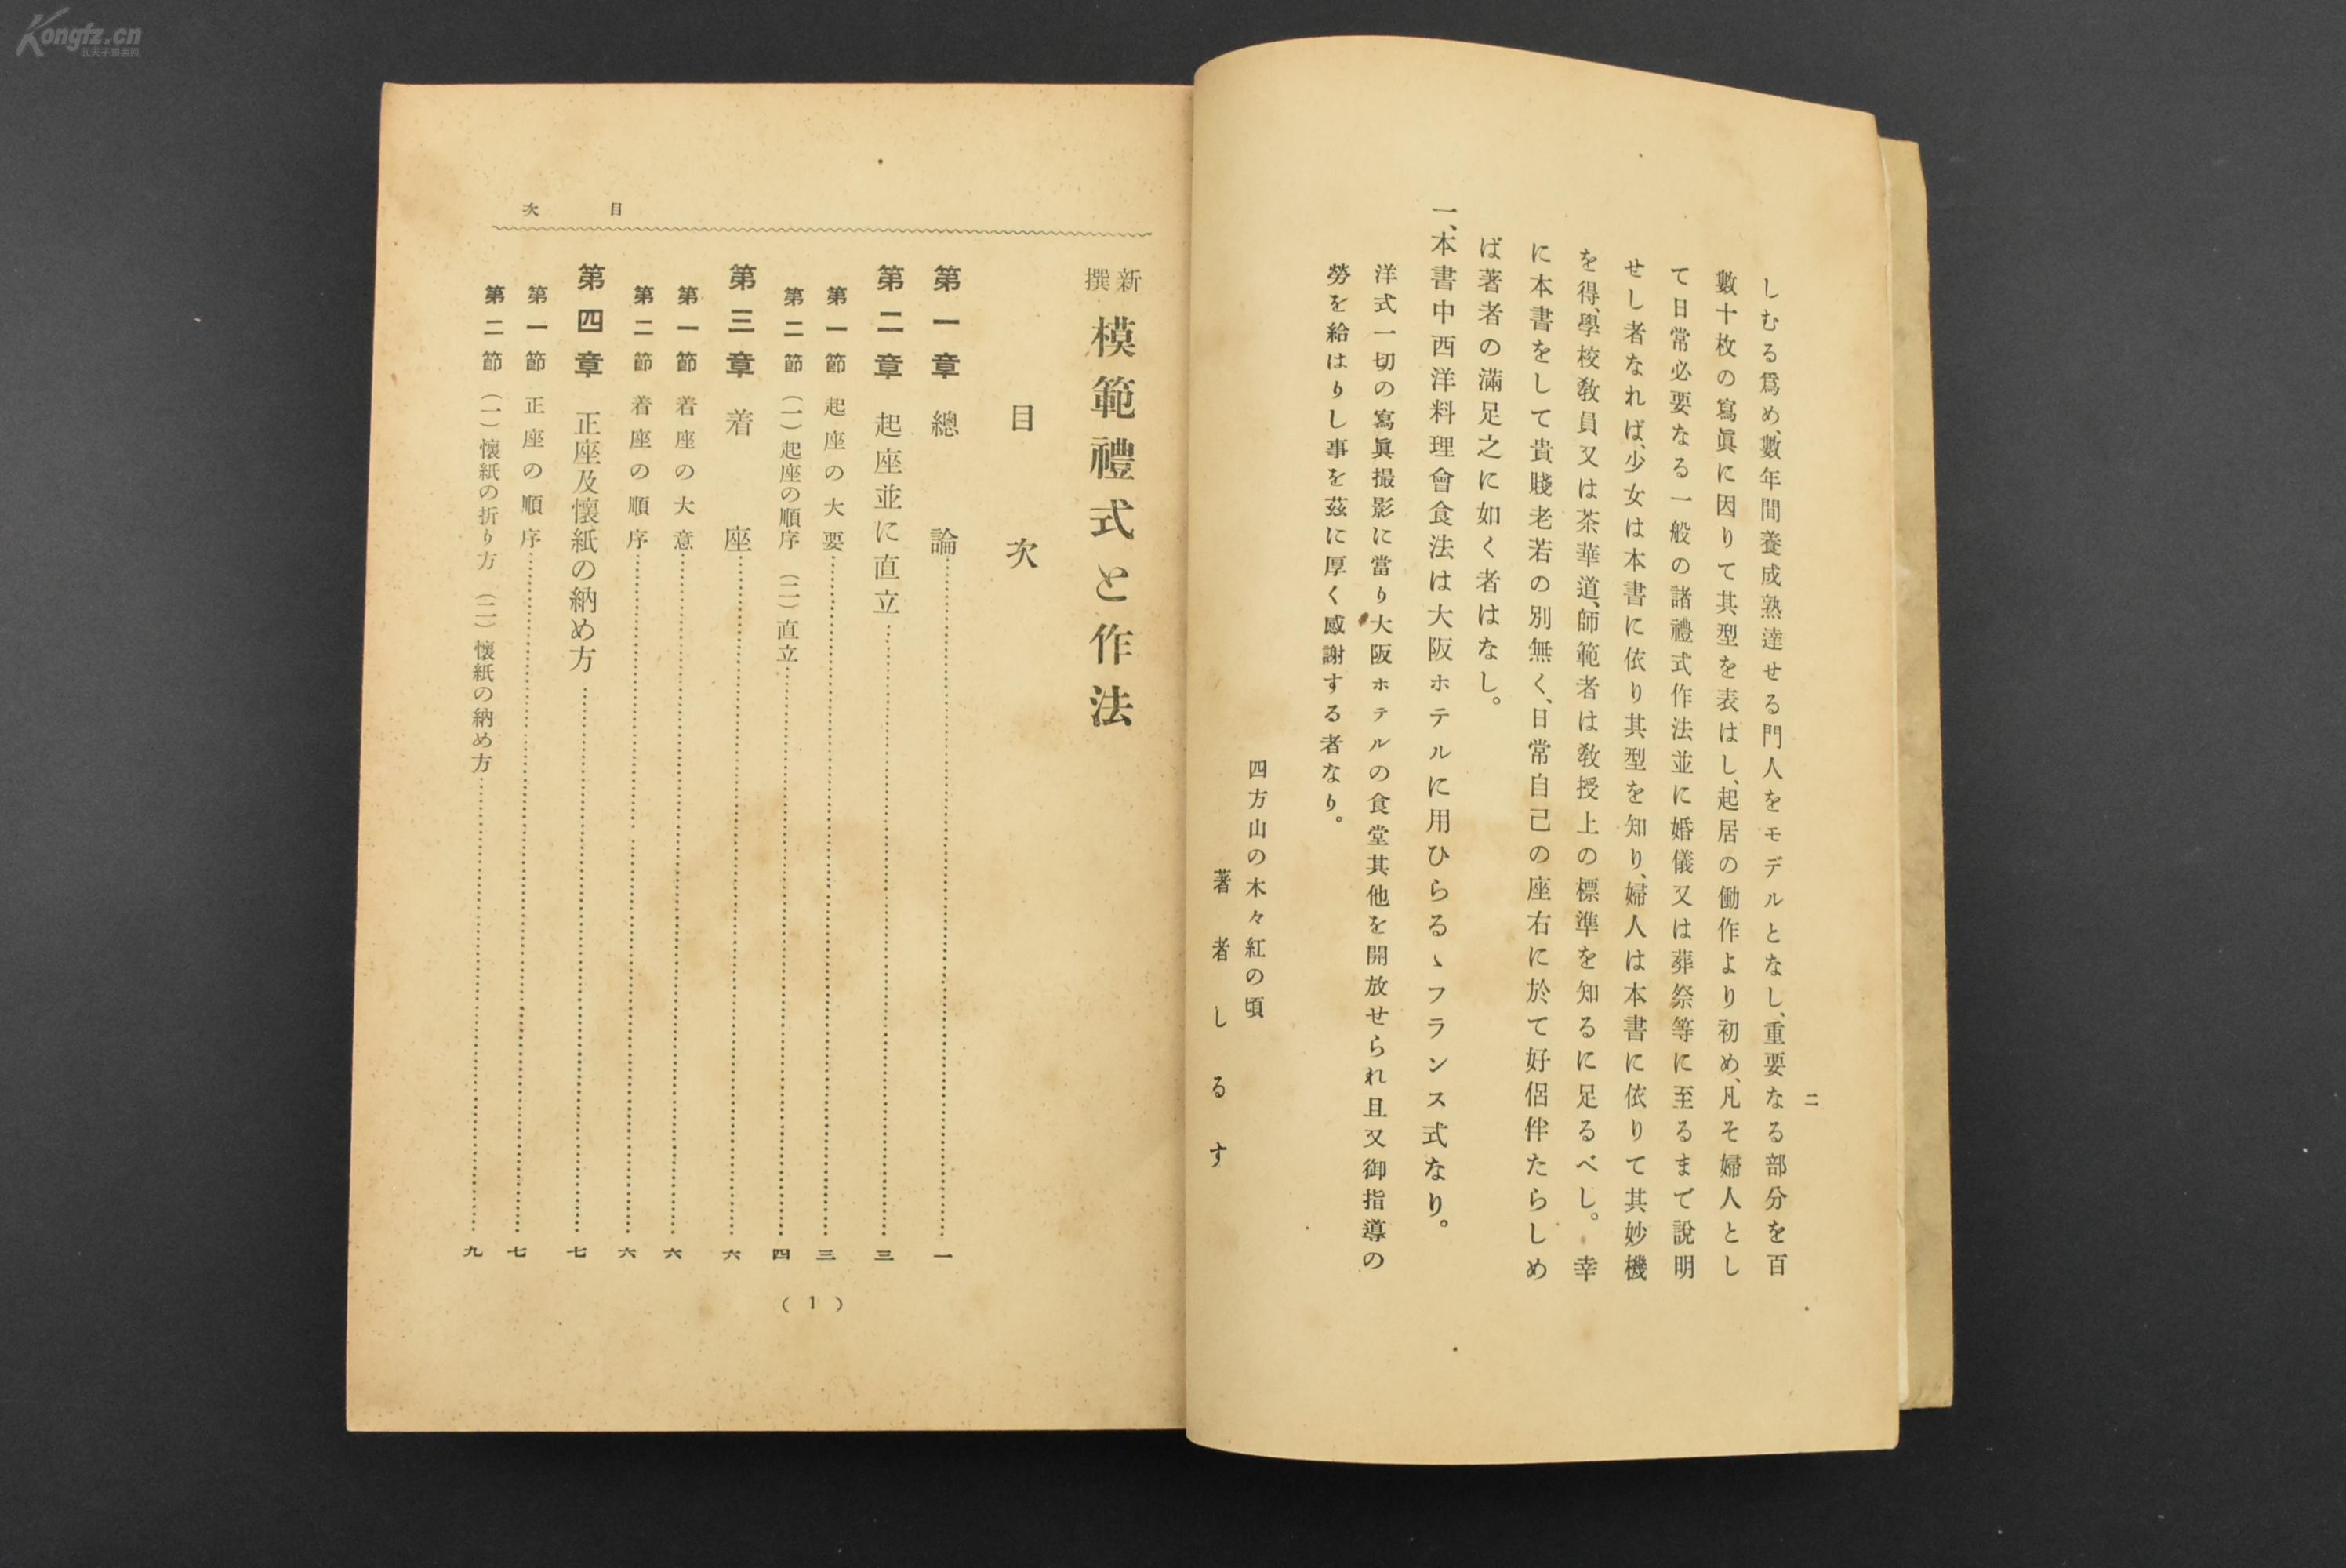 Kongfz.cn
孔夫子拍卖网
二
しむる爲め、數年間養成熟達せる門人をモデルとなし、重要なる部分を百
數十枚の寫眞に因りて其型を表はし、起居の働作より初め、凡そ婦人とし
て日常必要なる一般の諸禮式作法並に婚儀又は葬祭等に至るまで說明
せし者なれば、少女は本書に依り其型を知り、婦人は本書に依りて其妙機
を得、學校敎員又は茶華道、師範者は敎授上の標準を知るに足るべし。幸
に本書をして貴賤老若の別無く、日常自己の座右に於て好侶伴たらしめ
ば著者の滿足之に如く者はなし。
一、本書中西洋料理會食法は大阪ホテルに用ひらるゝフランス式なり。
洋式一切の寫眞撮影に當り大阪ホテルの食堂其他を開放せられ且又御指導の
勞を給はりし事を茲に厚く感謝する者なり。
四方山の木々紅の頃
著者しるす
目次
新撰 模範禮式と作法
目次
第一章 總論……一
第二章 起座並に直立……三
第一節 起座の大要……三
第二節 (一)起座の順序 (二)直立……四
第三章 着座……六
第一節 着座の大意……六
第二節 着座の順序……六
第四章 正座及懷紙の納め方……七
第一節 正座の順序……七
第二節 (一)懷紙の折り方 (二)懷紙の納め方……九
(1)